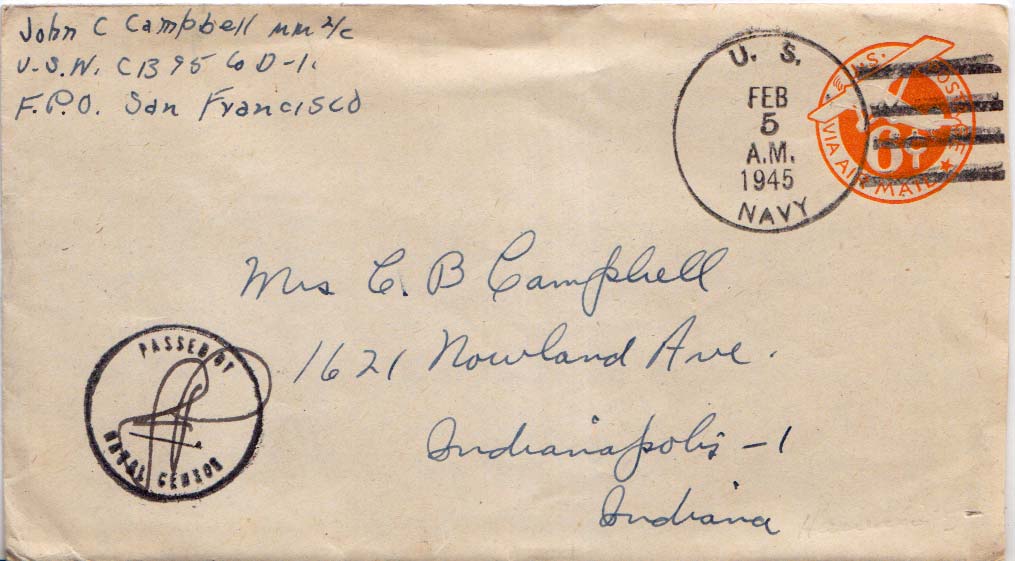 John C Campbell MM 2/c
U.S.N. C.B. 95 Co D-1.
F.P.O. San Francisco
U. S.
FEB
5
A.M.
1945
NAVY
U.S. POSTAGE
6¢
VIA AIR MAIL
Mrs C. B Campbell
1621 Nowland Ave.
Indianapolis - 1
Indiana
PASSED BY
NAVAL CENSOR